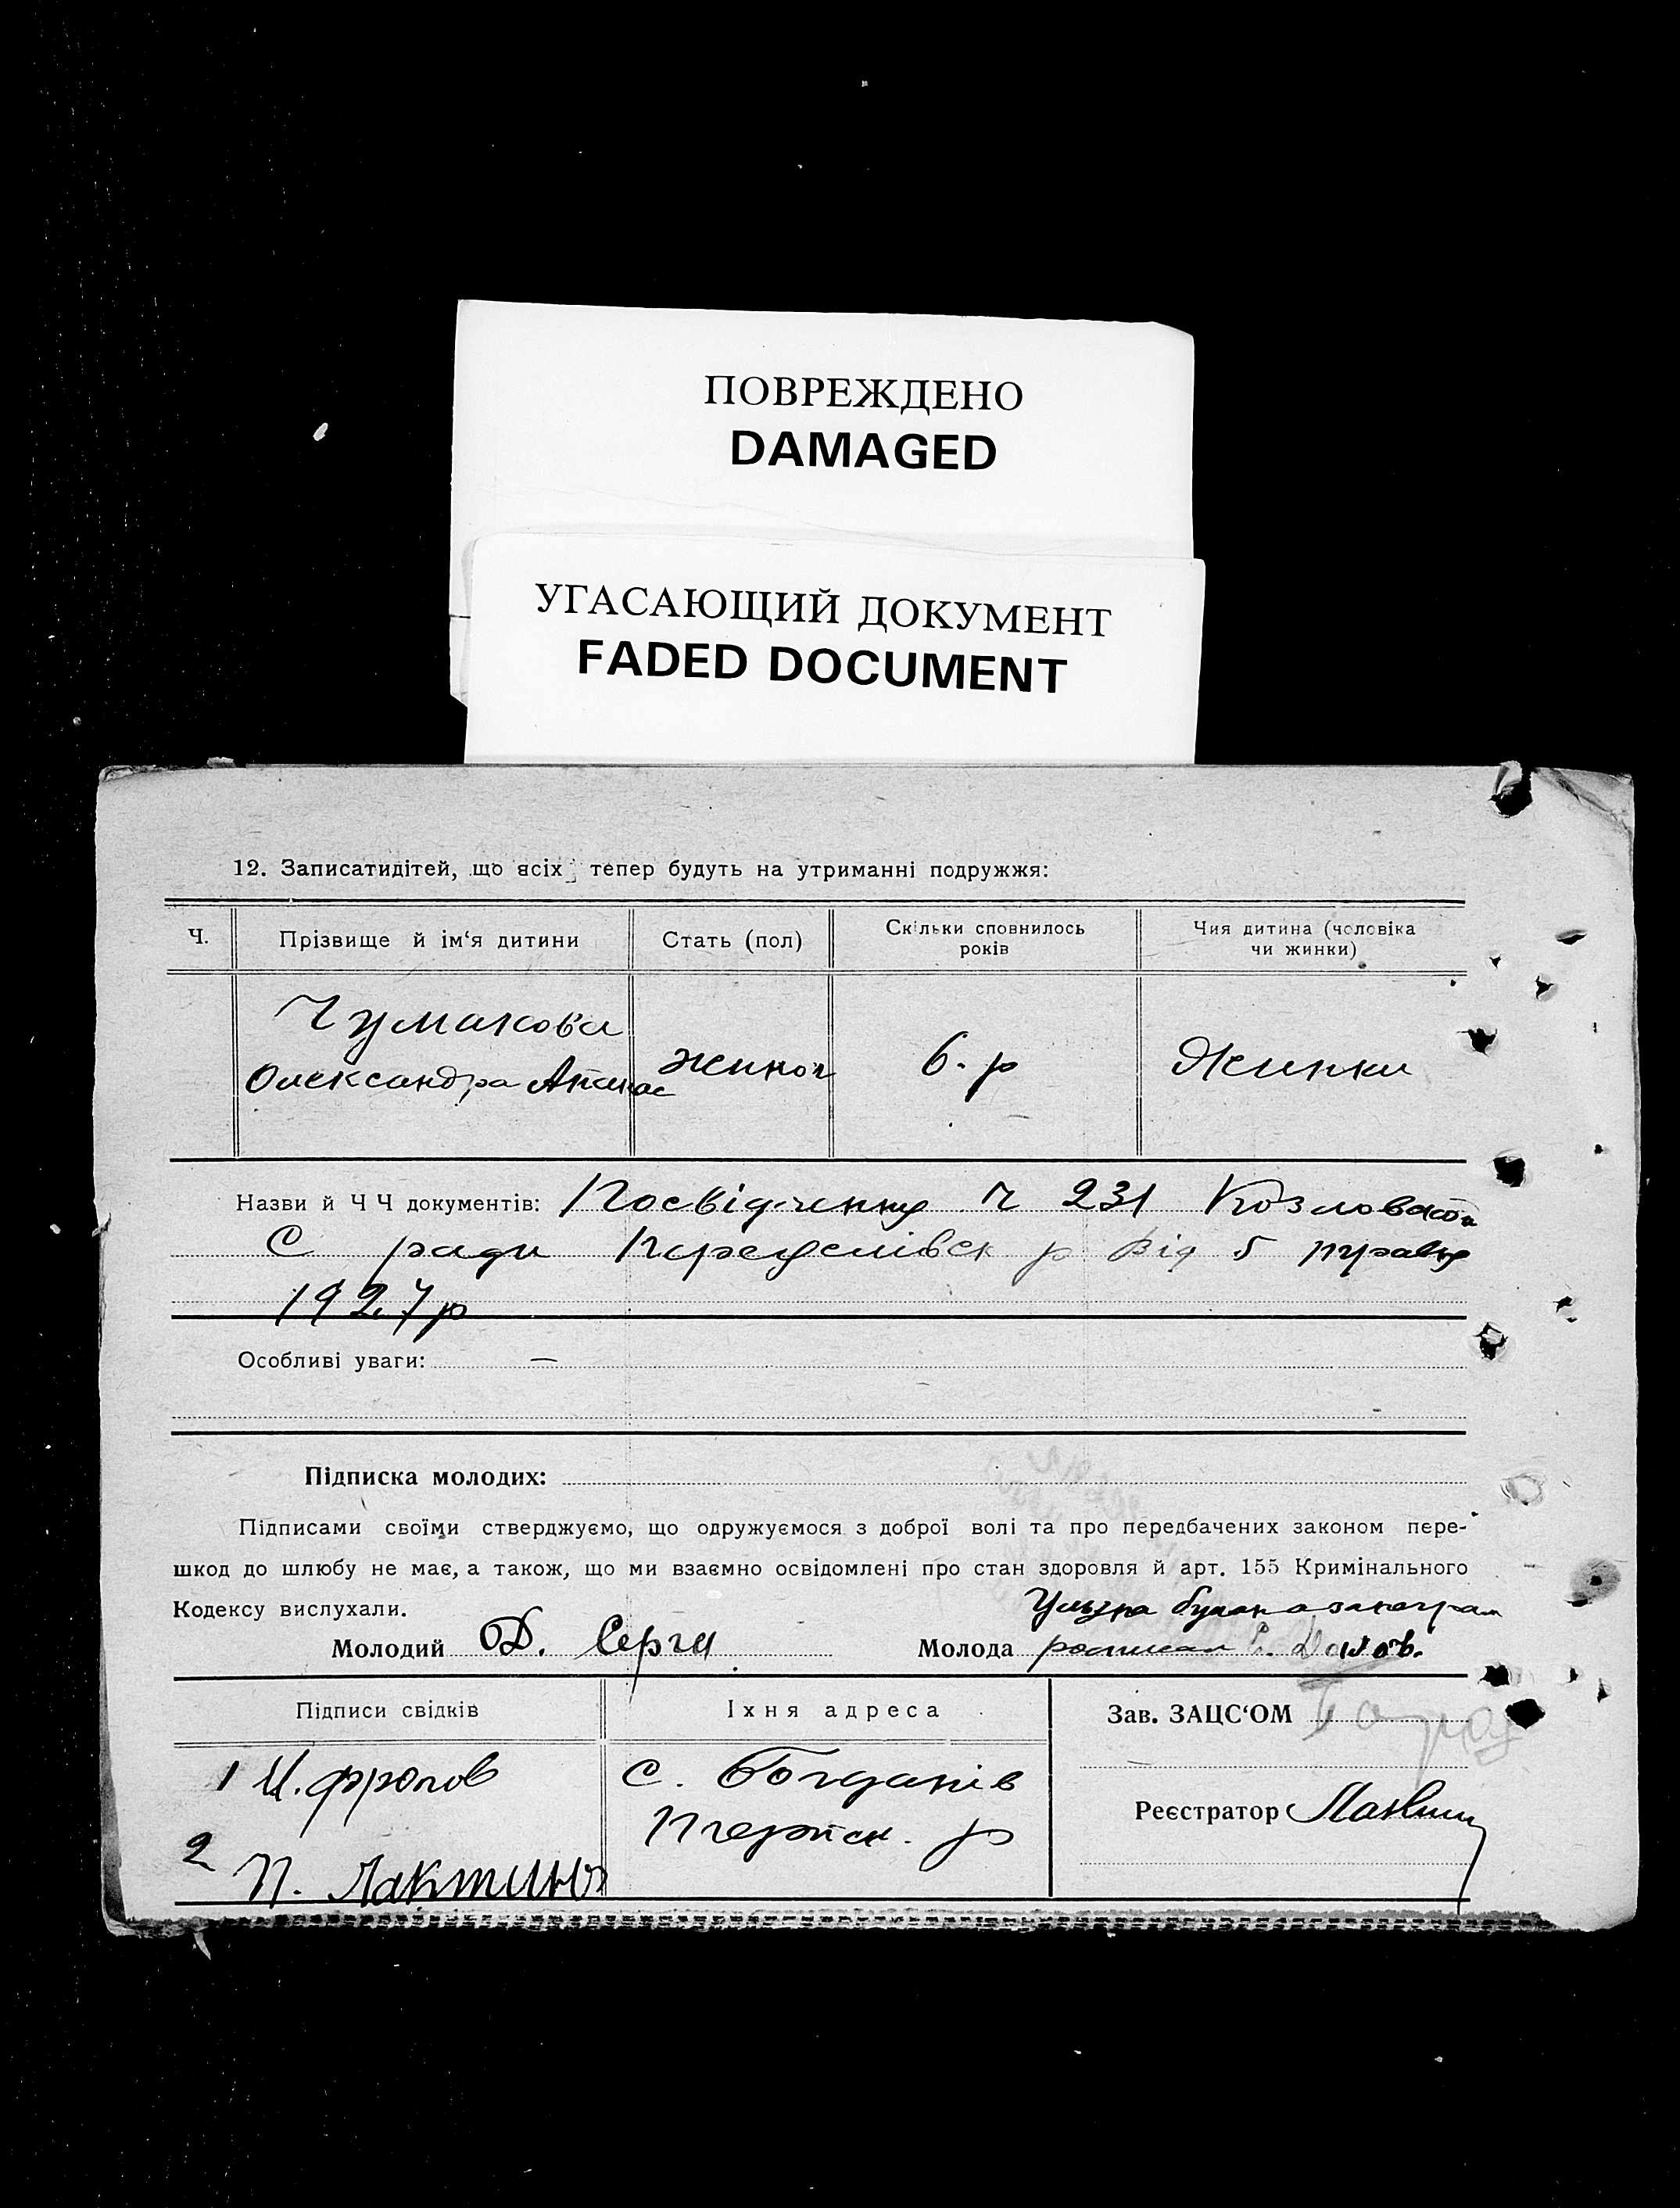 ПОВРЕЖДЕНО
DAMAGED
УГАСАЮЩИЙ ДОКУМЕНТ
FADED DOCUMENT
12. Записатидітей, що всіх тепер будуть на утриманні подружжя:
Ч. Прізвище й ім‘я дитини Стать (пол) Скільки сповнилось років Чия дитина (чоловіка чи жинки)
Чумакова
Олександра Апанас женкоч 6. р Женки
Назви й Ч Ч документів: Посвідчення Ч 231 Козловской
С ради від 5
1927р
Особливі уваги: —
Підписка молодих:
Підписами своїми стверджуємо, що одружуємося з доброї волі та про передбачених законом пере-
шкод до шлюбу не має, а також, що ми взаємно освідомлені про стан здоровля й арт. 155 Кримінального
Кодексу вислухали.
Молодий Д. Серги Молода
Підписи свідків Їхня адреса Зав. ЗАЦС‘ОМ
1 И. Фролов С. Богданів
р Реєстратор
2 П. Лактинов